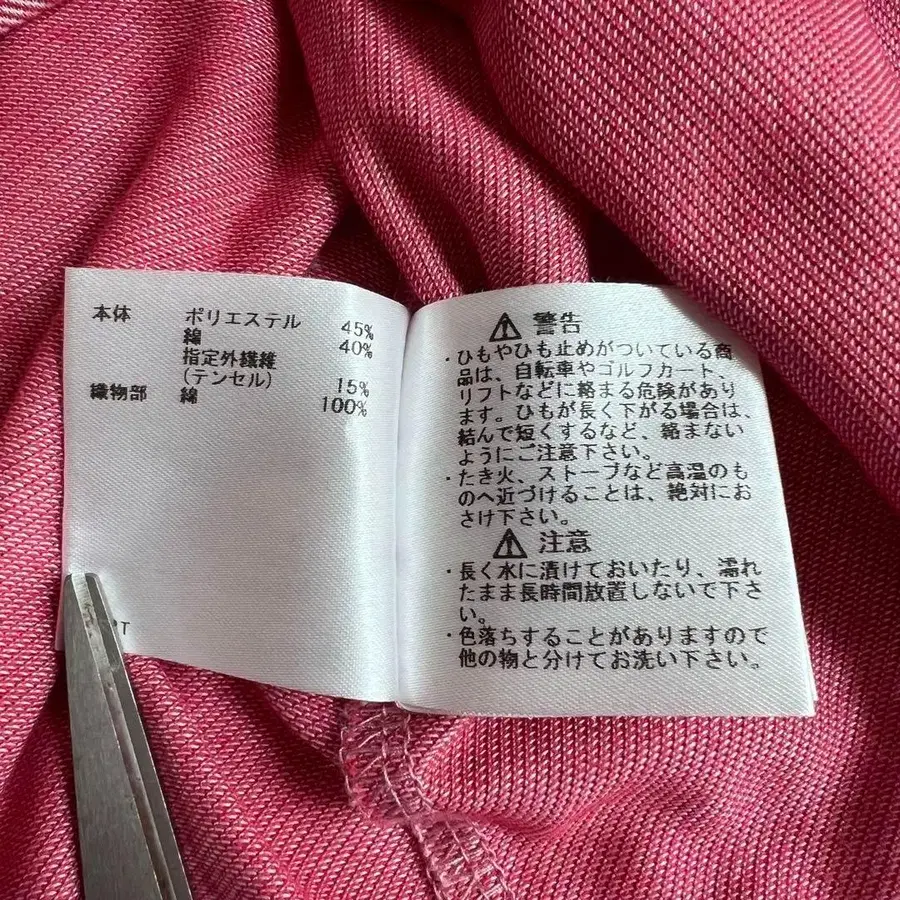 本体 ポリエステル 45%
綿 40%
指定外繊維
(テンセル) 15%
織物部 綿 100%
⚠ 警告
・ひもやひも止めがついている商
品は、自転車やゴルフカート、
リフトなどに絡まる危険があり
ます。ひもが長く下がる場合は、
結んで短くするなど、絡まない
ようにご注意下さい。
・たき火、ストーブなど高温のも
のへ近づけることは、絶対にお
さけ下さい。
⚠ 注意
・長く水に漬けておいたり、濡れ
たまま長時間放置しないで下さ
い。
・色落ちすることがありますので
他の物と分けてお洗い下さい。